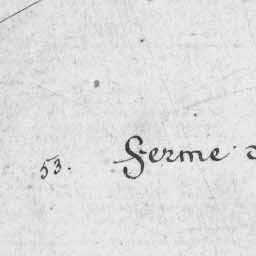 53. Ferme